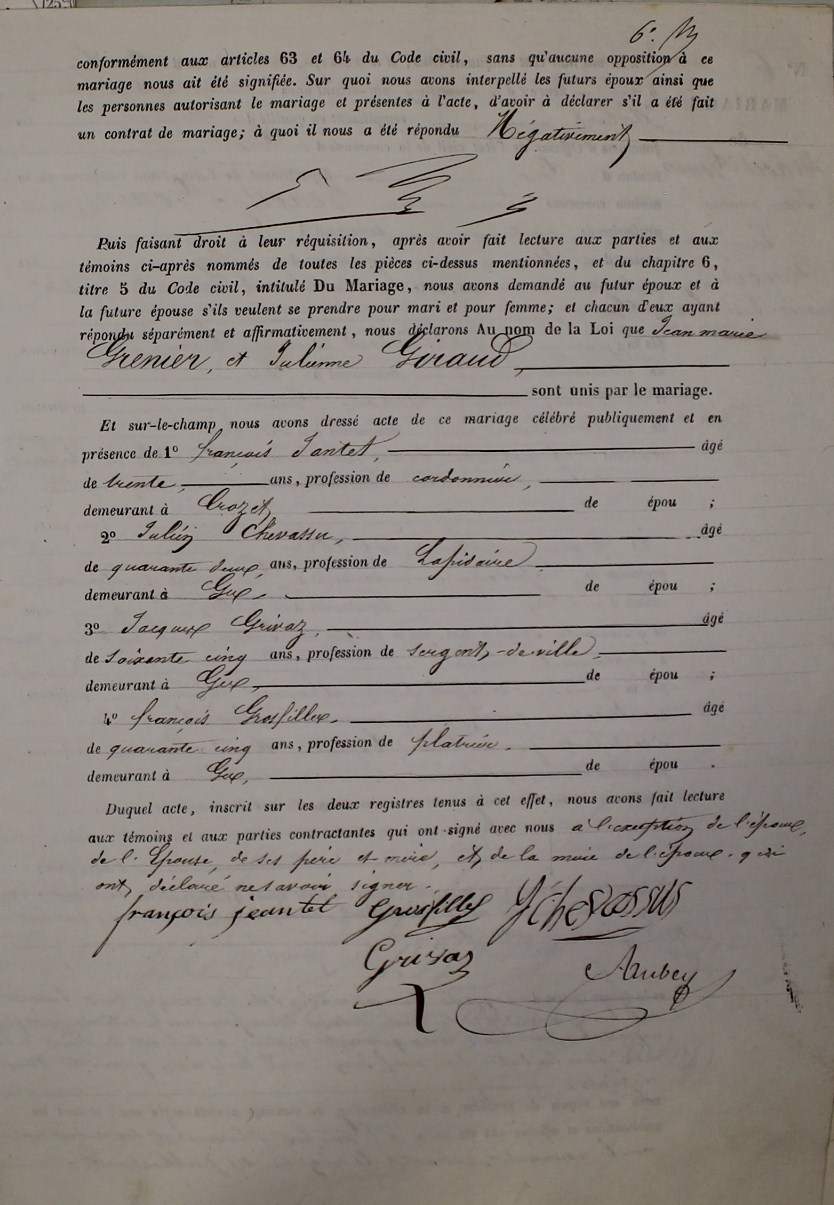 125
6e.
conformément aux articles 63 et 64 du Code civil, sans qu'aucune opposition à ce
mariage nous ait été signifiée. Sur quoi nous avons interpellé les futurs époux ainsi que
les personnes autorisant le mariage et présentes à l'acte, d'avoir à déclarer s'il a été fait
un contrat de mariage; à quoi il nous a été répondu Négativement
Puis faisant droit à leur réquisition, après avoir fait lecture aux parties et aux
témoins ci-après nommés de toutes les pièces ci-dessus mentionnées, et du chapitre 6,
titre 5 du Code civil, intitulé Du Mariage, nous avons demandé au futur époux et à
la future épouse s'ils veulent se prendre pour mari et pour femme; et chacun d'eux ayant
répondu séparément et affirmativement, nous déclarons Au nom de la Loi que Jean marie
Grenier, et Julienne Giraud,
sont unis par le mariage.
Et sur-le-champ, nous avons dressé acte de ce mariage célébré publiquement et en
présence de 1º françois Jantet, âgé
de trente, ans, profession de cordonnier,
demeurant à Crozet de épou ;
2º Julien Chevassu, âgé
de quarante deux, ans, profession de Lapidaire
demeurant à Gex, de épou ;
3º Jacques Grivaz, âgé
de soixante cinq ans, profession de sergent-de-ville
demeurant à Gex, de épou ;
4º françois Grosfillex. âgé
de quarante cinq ans, profession de platrier.
demeurant à Gex, de épou .
Duquel acte, inscrit sur les deux registres tenus à cet effet, nous avons fait lecture
aux témoins et aux parties contractantes qui ont signé avec nous a l'exception de l'époux,
de l'Epouse, de ses père et mère, et de la mère de l'époux. qui
ont déclaré ne savoir signer.
françois jeantet Grosfillex J Chevassus
Grivaz Aubey